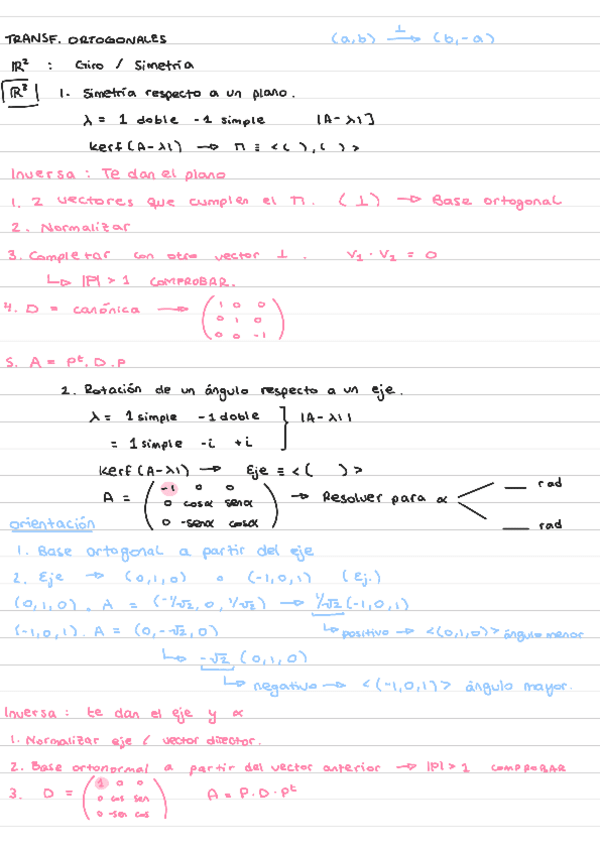 TRANSF. ORTOGONALES (a,b) ⊥→ (b,-a)
ℝ² : Giro / Simetría
ℝ³ 1. Simetría respecto a un plano.
λ = 1 doble -1 simple |A-λI|
Kerf(A-λI) → π ≡ <( ),( )>
Inversa: Te dan el plano
1. 2 vectores que cumplen el π. (⊥) → Base ortogonal
2. Normalizar
3. Completar con otro vector ⊥. V₁ · V₂ = 0
↳ |P| > 1 COMPROBAR.
4. D = canónica → (1 0 0
0 1 0
0 0 -1)
5. A = Pᵗ. D. P
2. Rotación de un ángulo respecto a un eje.
λ = 1 simple -1 doble } |A-λI|
= 1 simple -i +i
Kerf(A-λI) → Eje ≡ <( )>
A = (-1 0 0
0 cosα senα
0 -senα cosα) → Resolver para α __ rad
__ rad
orientación
1. Base ortogonal a partir del eje
2. Eje → (0,1,0) o (-1,0,1) (Ej.)
(0,1,0). A = (-1/√2, 0, 1/√2) → 1/√2 (-1,0,1)
(-1,0,1). A = (0,-√2,0) ↳ positivo → <(0,1,0)> ángulo menor
↳ -√2 (0,1,0)
↳ negativo → <(-1,0,1)> ángulo mayor.
Inversa: te dan el eje y α
1. Normalizar eje / vector director.
2. Base ortonormal a partir del vector anterior → |P| > 1 COMPROBAR
3. D = (1 0 0
0 cos sen
0 -sen cos) A = P. D. Pᵗ